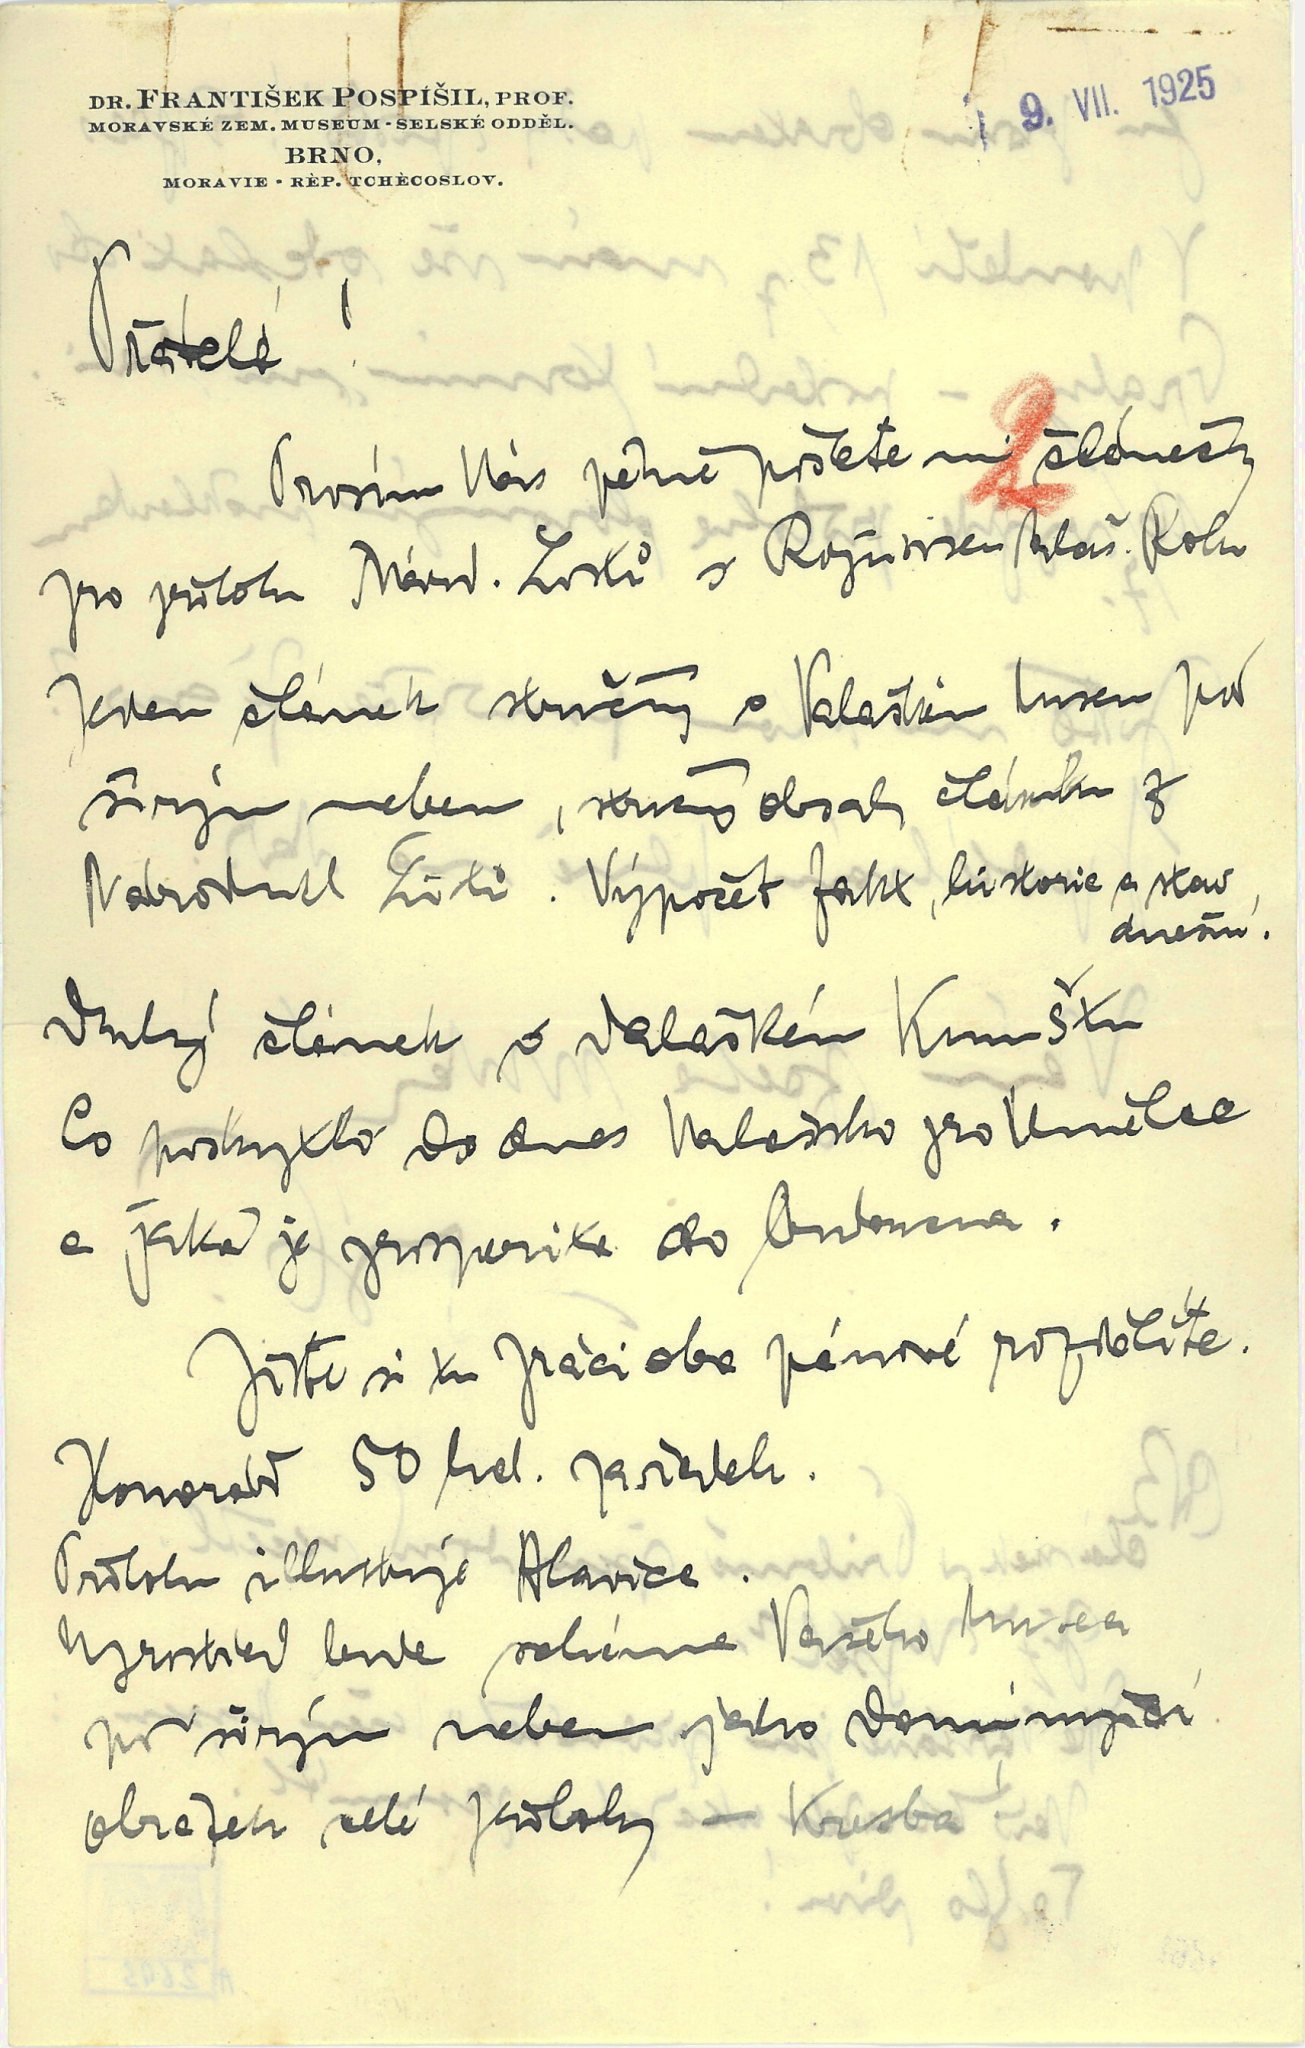 DR. FRANTIŠEK POSPÍŠIL, PROF.
MORAVSKÉ ZEM. MUSEUM - SELSKÉ ODDĚL.
BRNO,
MORAVIE - RÈP. TCHÈCOSLOV.
9. VII. 1925
Přátelé!
Prosím Vás pěkně pošlete mi 2 články
pro přílohu Národ. Listů o Rožnovsku Valaš. Roku
jeden článek stručný o Valašském Museu pod
širým nebem, stručný obsah článku z
Národních Listů. Výpočet fakt, historie a stav
dnešní.
Druhý článek o valašském Kumštu
Co poskytlo do dnes Valašsko pro Umělce
a jaká je prosperita do budoucna.
Jistě si tu práci oba pánové rozdělíte.
Honorář 50 hal. řádek.
Přílohu illustruje Hlavica.
Uprostřed bude schéma Vašeho Musea
pod širým nebem jako dominující
obrázek celé přílohy — Kresba